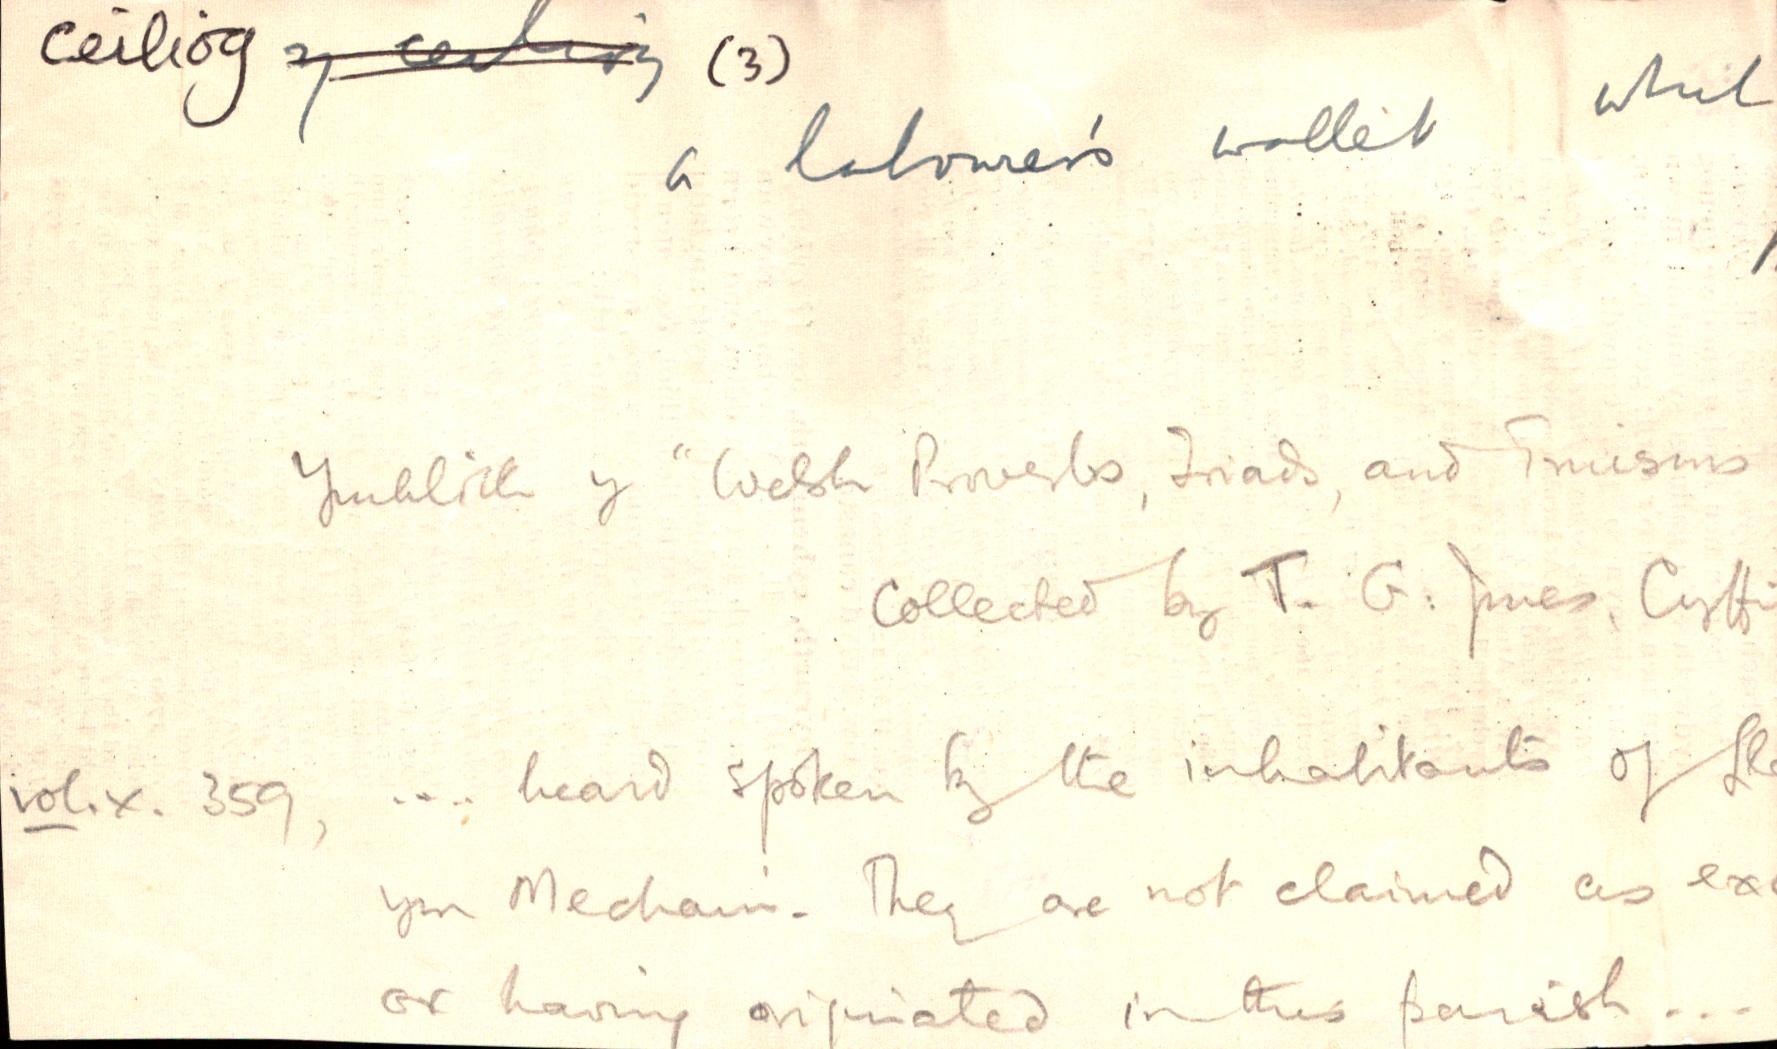 ceiliog y ceiliog (3)
a labourer's wallet
Ymhlith y "Welsh Proverbs, Triads, and Truisms
Collected by T. G. Jones, Cyffi
vol. x. 359, .... heard spoken by the inhabitants of Lla
ym Mechain. They are not claimed as exc
or having originated in this parish ...